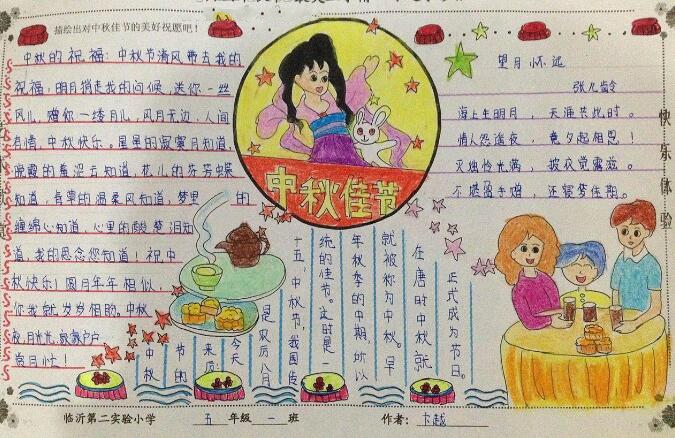 描绘出对中秋佳节的美好祝愿吧！
中秋的祝福：中秋节清风带去我的
祝福，明月捎走我的问候，送你一丝
风儿，赠你一缕月儿，风月无边，人间
有情，中秋快乐。星星的寂寞月知道，
晚霞的羞涩云知道，花儿的芬芳蝶
知道，青草的温柔风知道，梦里的
缠绵心知道，心里的酸楚泪知
道，我的思念您知道，祝中
秋快乐！圆月年年相似，
你我岁岁相盼。中秋
夜，月光光，家家户户
赏月忙！
中秋佳节
望月怀远
张九龄
海上生明月，天涯共此时。
情人怨遥夜，竟夕起相思！
灭烛怜光满，披衣觉露滋。
不堪盈手赠，还寝梦佳期。
快乐体验
中秋
节的
来源：
今天
是农历八月
十五，中秋节，我国传
统的佳节。这时是一
年秋季的中期，所以
就被称为中秋。早
在唐时中秋就
正式成为节日。
临沂第二实验小学 五年级一班 作者：卞越